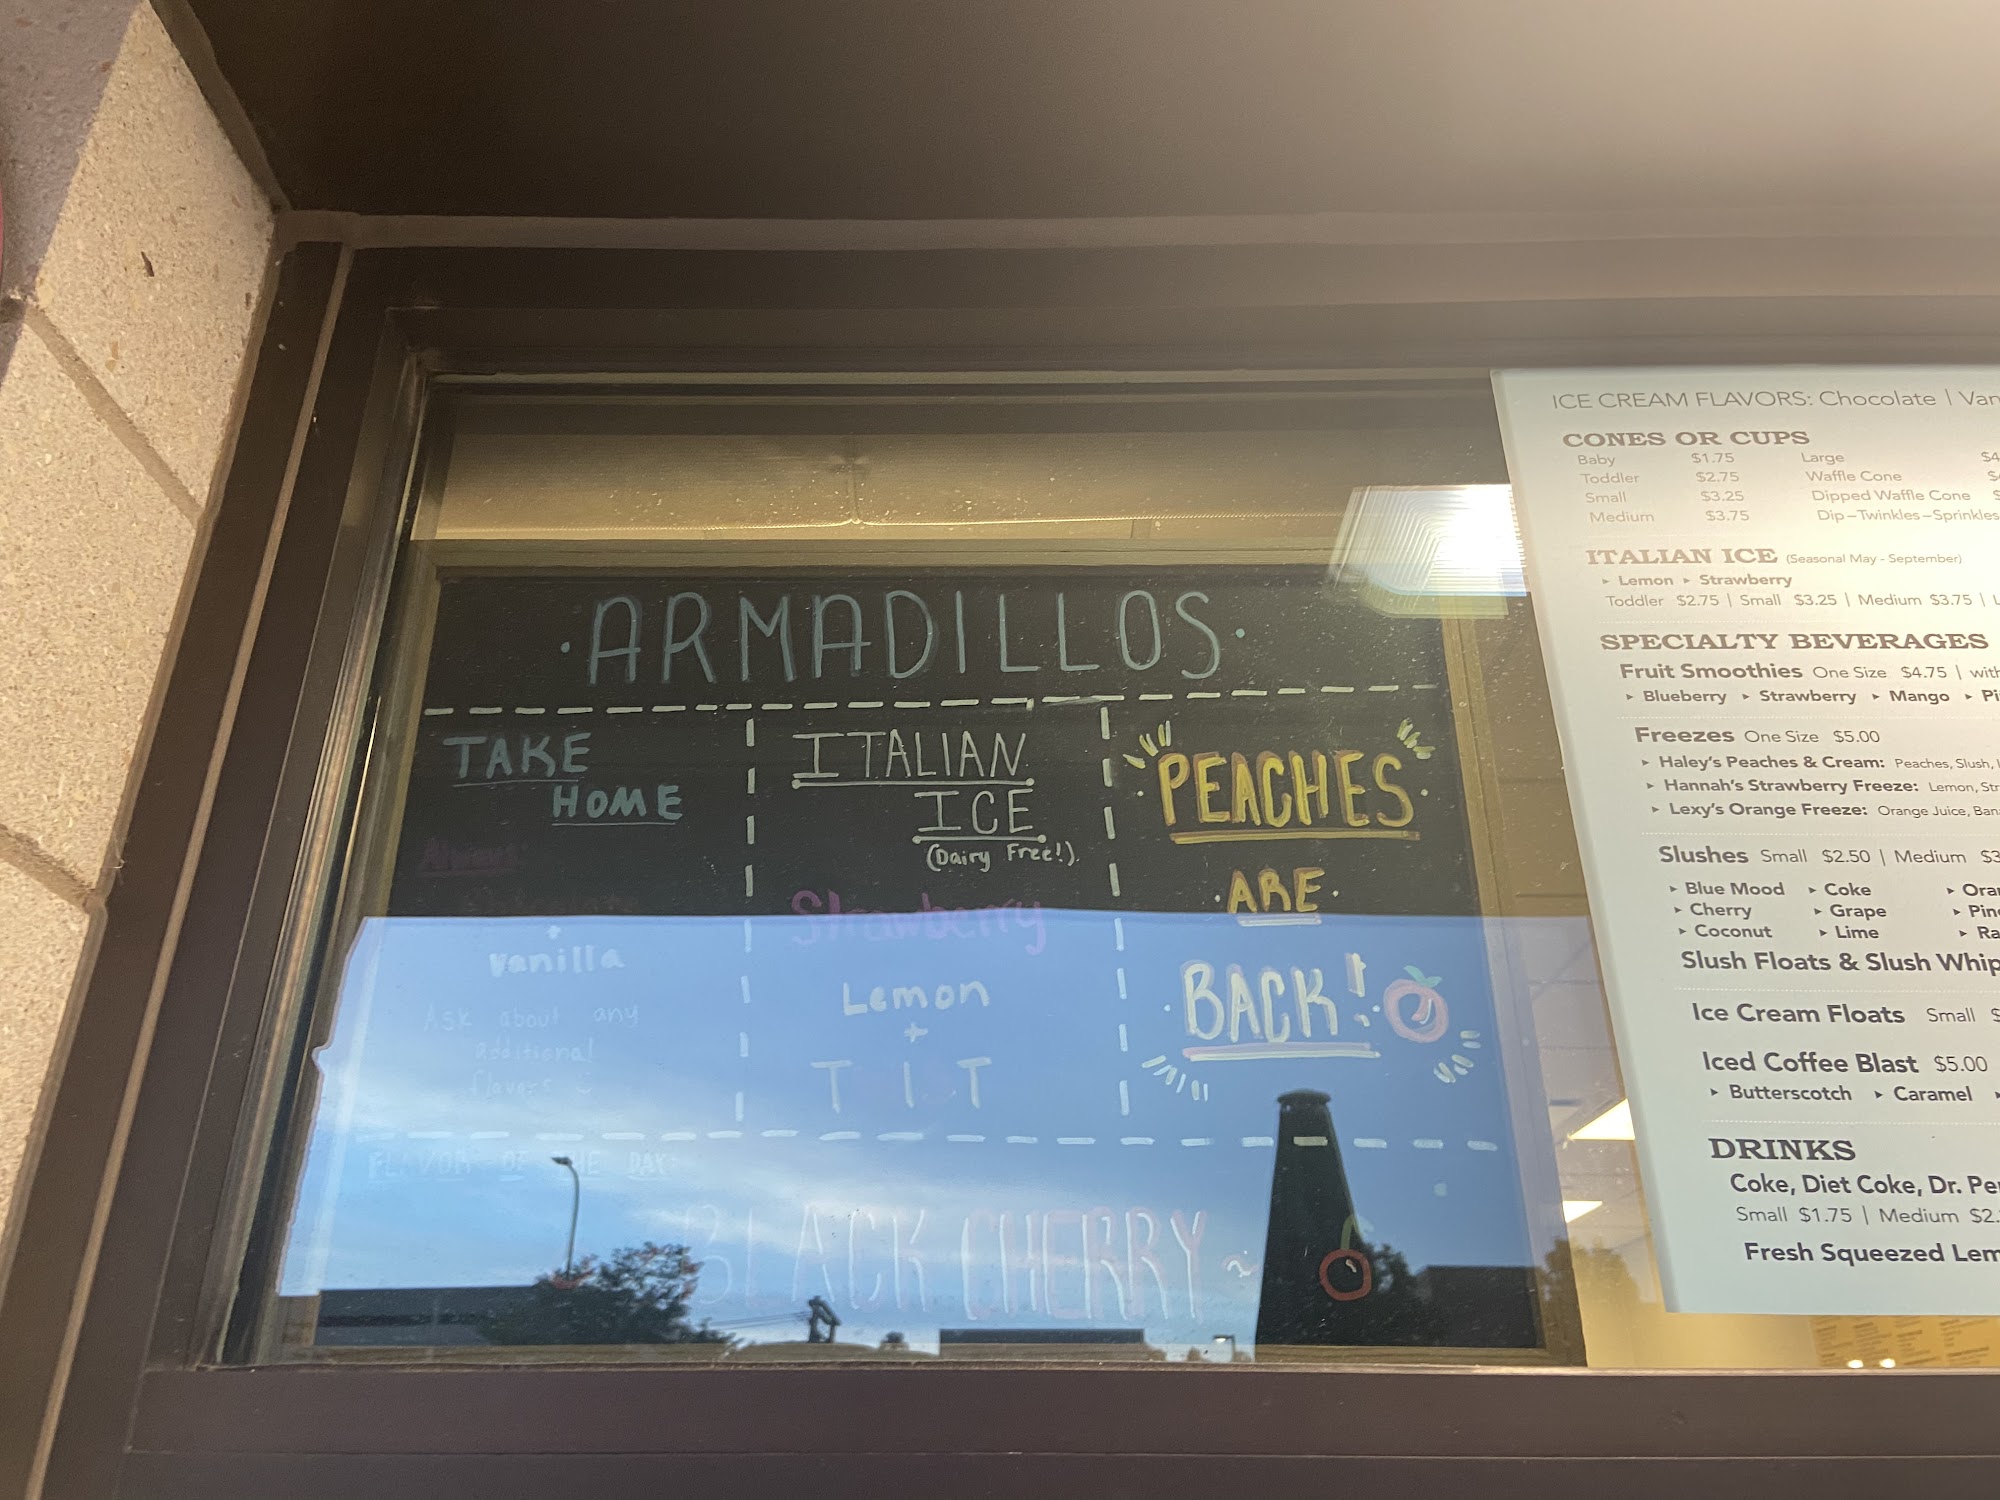 ·ARMADILLOS·
TAKE
HOME
Always:
Chocolate
+
vanilla
Ask about any
additional
flavors
ITALIAN
ICE
(Dairy Free!)
Strawberry
Lemon
+
PEACHES
·ARE·
·BACK!·
FLAVOR OF THE DAY
BLACK CHERRY~
ICE CREAM FLAVORS: Chocolate |
CONES OR CUPS
Baby $1.75 Large
Toddler $2.75 Waffle Cone
Small $3.25 Dipped Waffle Cone
Medium $3.75 Dip–Twinkles–Sprinkles
ITALIAN ICE (Seasonal May - September)
▸ Lemon ▸ Strawberry
Toddler $2.75 | Small $3.25 | Medium $3.75 |
SPECIALTY BEVERAGES
Fruit Smoothies One Size $4.75 | with
▸ Blueberry ▸ Strawberry ▸ Mango ▸
Freezes One Size $5.00
▸ Haley's Peaches & Cream: Peaches, Slush,
▸ Hannah's Strawberry Freeze: Lemon,
▸ Lexy's Orange Freeze: Orange Juice,
Slushes Small $2.50 | Medium
▸ Blue Mood ▸ Coke
▸ Cherry ▸ Grape
▸ Coconut ▸ Lime
Slush Floats & Slush Whip
Ice Cream Floats Small
Iced Coffee Blast $5.00
▸ Butterscotch ▸ Caramel
DRINKS
Coke, Diet Coke, Dr.
Small $1.75 | Medium
Fresh Squeezed